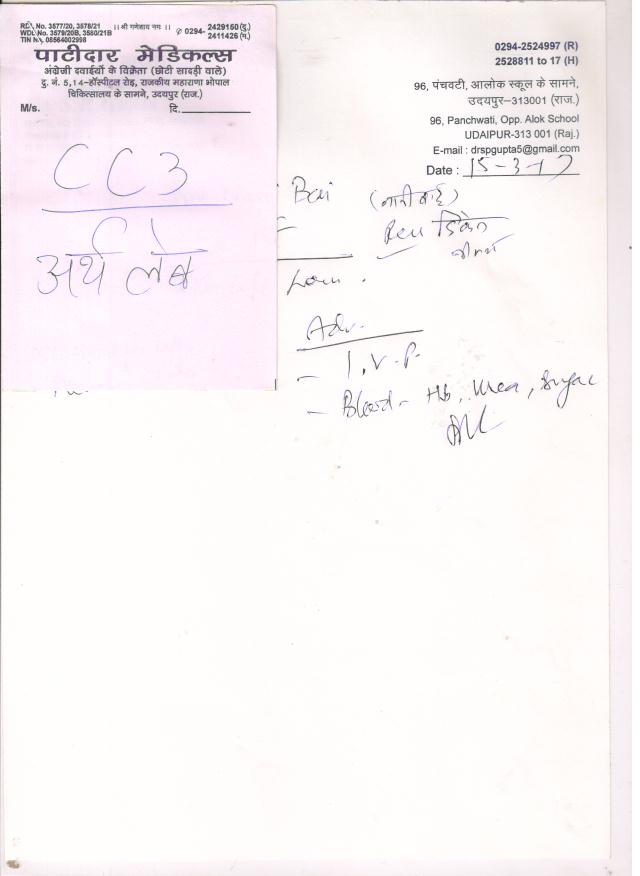 RDL No. 3577/20, 3578/21
WDL No. 3579/20B, 3580/21B
TIN No. 08564002998
।। श्री गणेशाय नमः ।।
✆ 0294- 2429150 (दु.)
2411426 (नि.)
पाटीदार मेडिकल्स
अंग्रेजी दवाईयों के विक्रेता (छोटी सादड़ी वाले)
दु. नं. 5,14-हॉस्पीटल रोड़, राजकीय महाराणा भोपाल
चिकित्सालय के सामने, उदयपुर (राज.)
M/s. दि.
CC3
अर्थ लेब
0294-2524997 (R)
2528811 to 17 (H)
96, पंचवटी, आलोक स्कूल के सामने,
उदयपुर–313001 (राज.)
96, Panchwati, Opp. Alok School
UDAIPUR-313 001 (Raj.)
E-mail : drspgupta5@gmail.com
Date : 15-3-17
Bai
Adv.
- I.V.P.
- Blood - Hb, Urea, Sugar